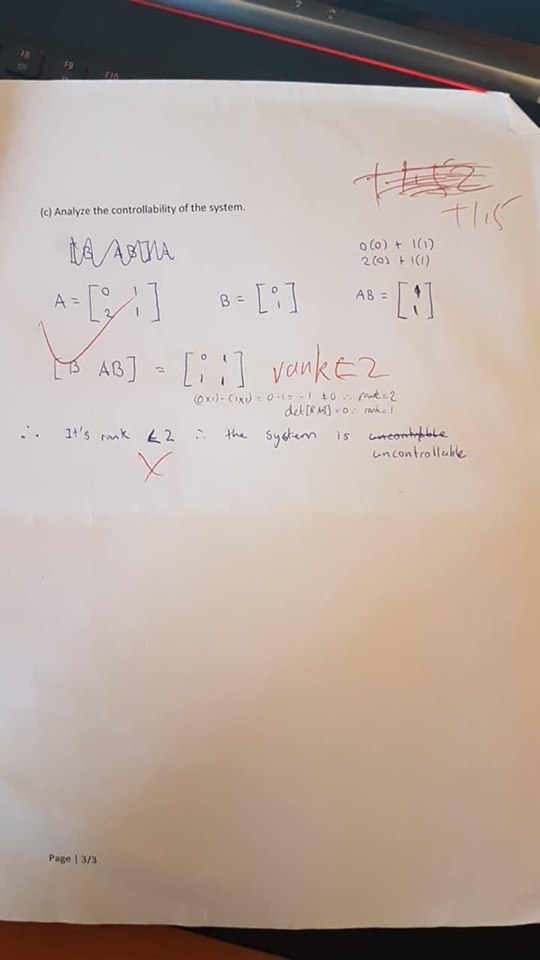 F8
F9
F10
+1.5
(c) Analyze the controllability of the system.
0(0) + 1(1)
2(0) + 1(1)
A = [0 1
2 1]
B = [0
1]
AB = [1
1]
[B AB] = [0 1
1 1]
rank = 2
(0x1) - (1x1) = 0-1 = -1 ≠ 0 ∴ rank = 2
det[B AB] = 0 ∴ rank = 1
∴ It's rank < 2 ∴ the system is
uncontrollable
Page | 3/3